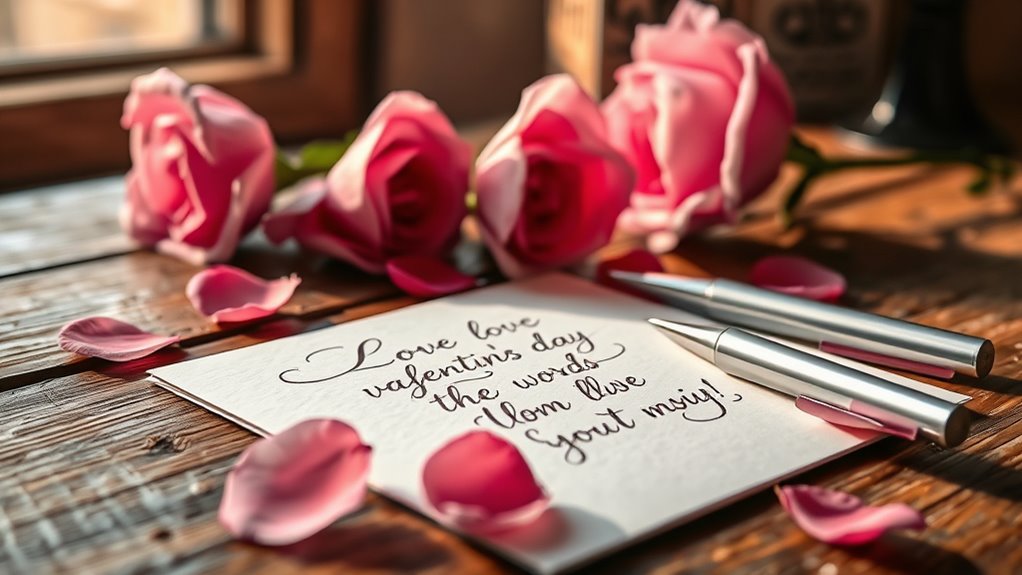 Love love
valentin's day
the words
Mom llwe
syout msiy!